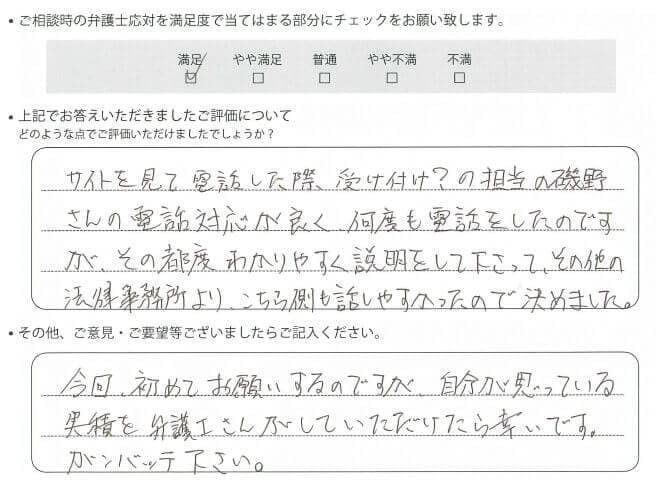 • ご相談時の弁護士応対を満足度で当てはまる部分にチェックをお願い致します。
満足 やや満足 普通 やや不満 不満
☑ □ □ □ □
• 上記でお答えいただきましたご評価について
どのような点でご評価いただけましたでしょうか？
サイトを見て電話した際、受け付け？の担当の磯野
さんの電話対応が良く、何度も電話をしたのです
が、その都度わかりやすく説明をして下さって、その他の
法律事務所より、こちら側も話しやすかったので決めました。
• その他、ご意見・ご要望等ございましたらご記入ください。
今回、初めてお願いするのですが、自分が思っている
実積を弁護士さんがしていただけたら幸いです。
ガンバッテ下さい。